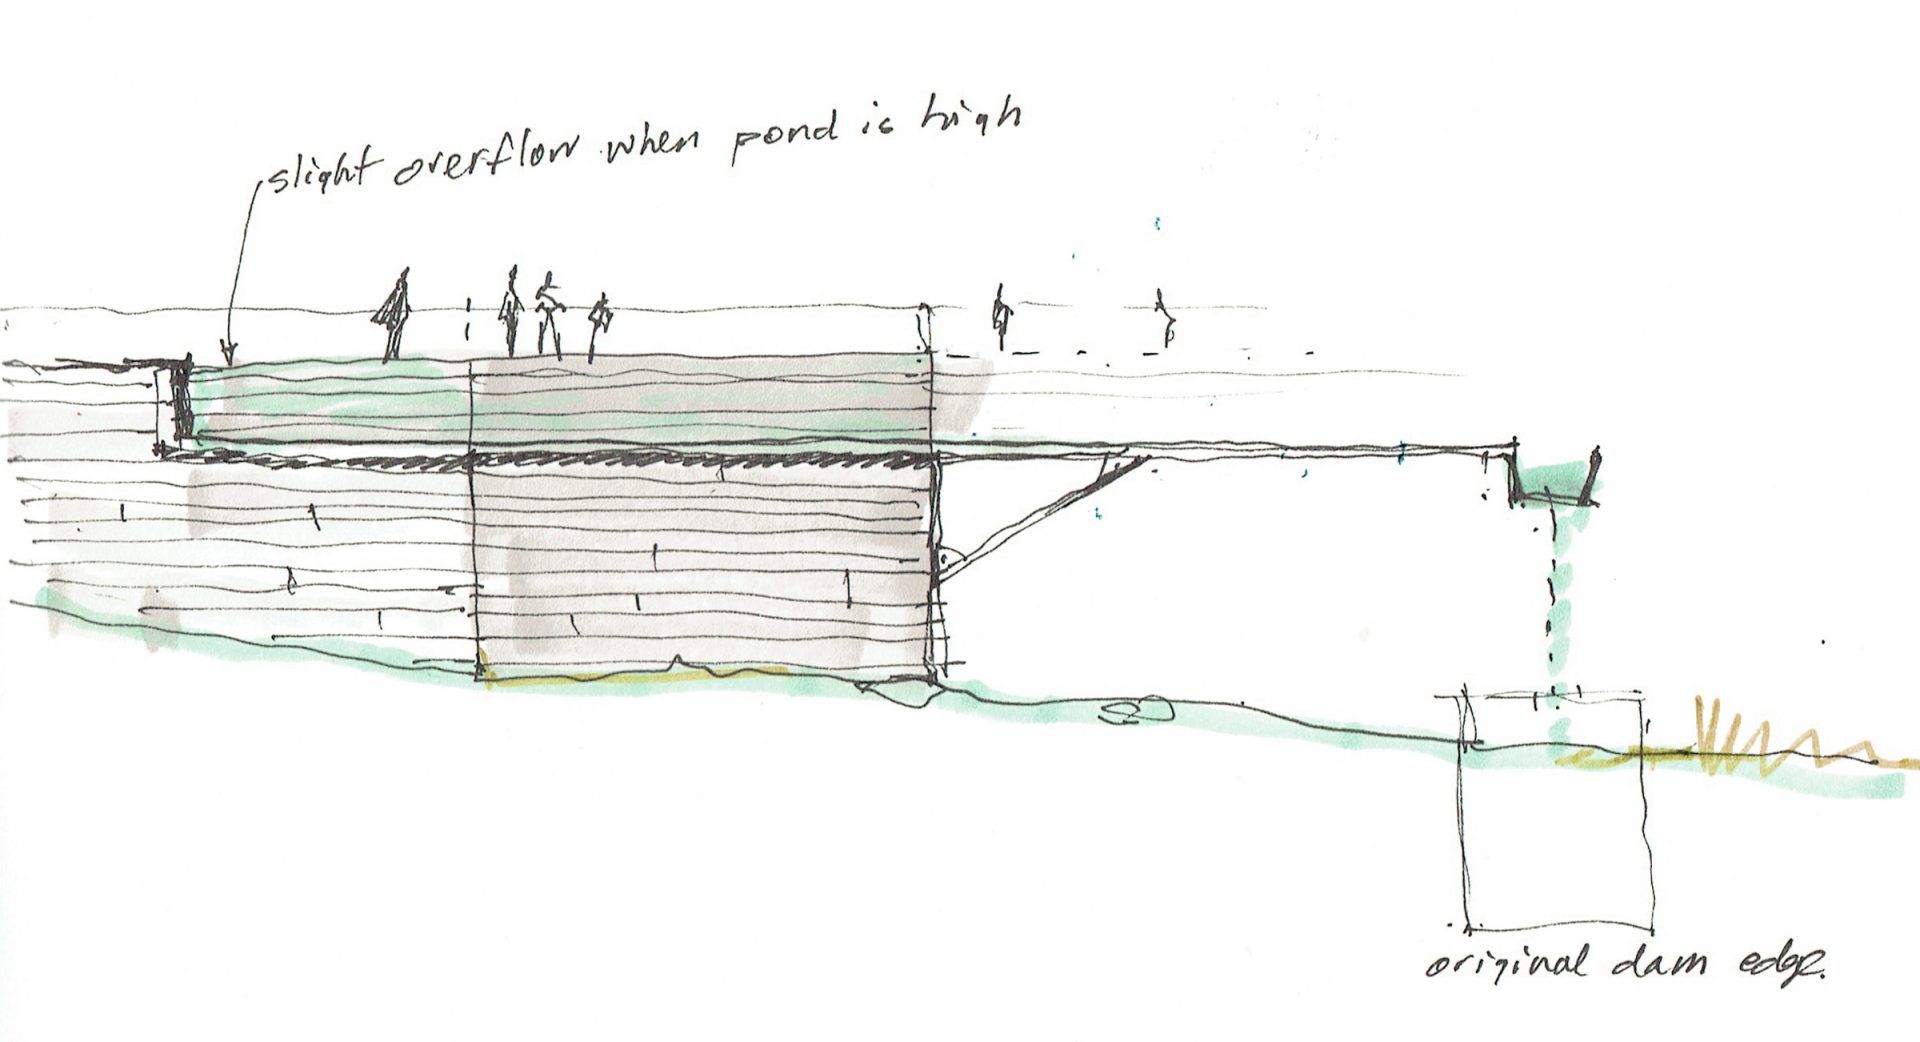 slight overflow when pond is high
original dam edge.